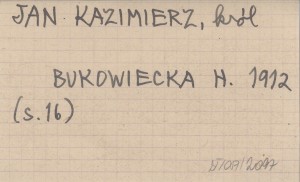 JAN KAZIMIERZ, król
BUKOWIECKA H. 1912
(s.16)